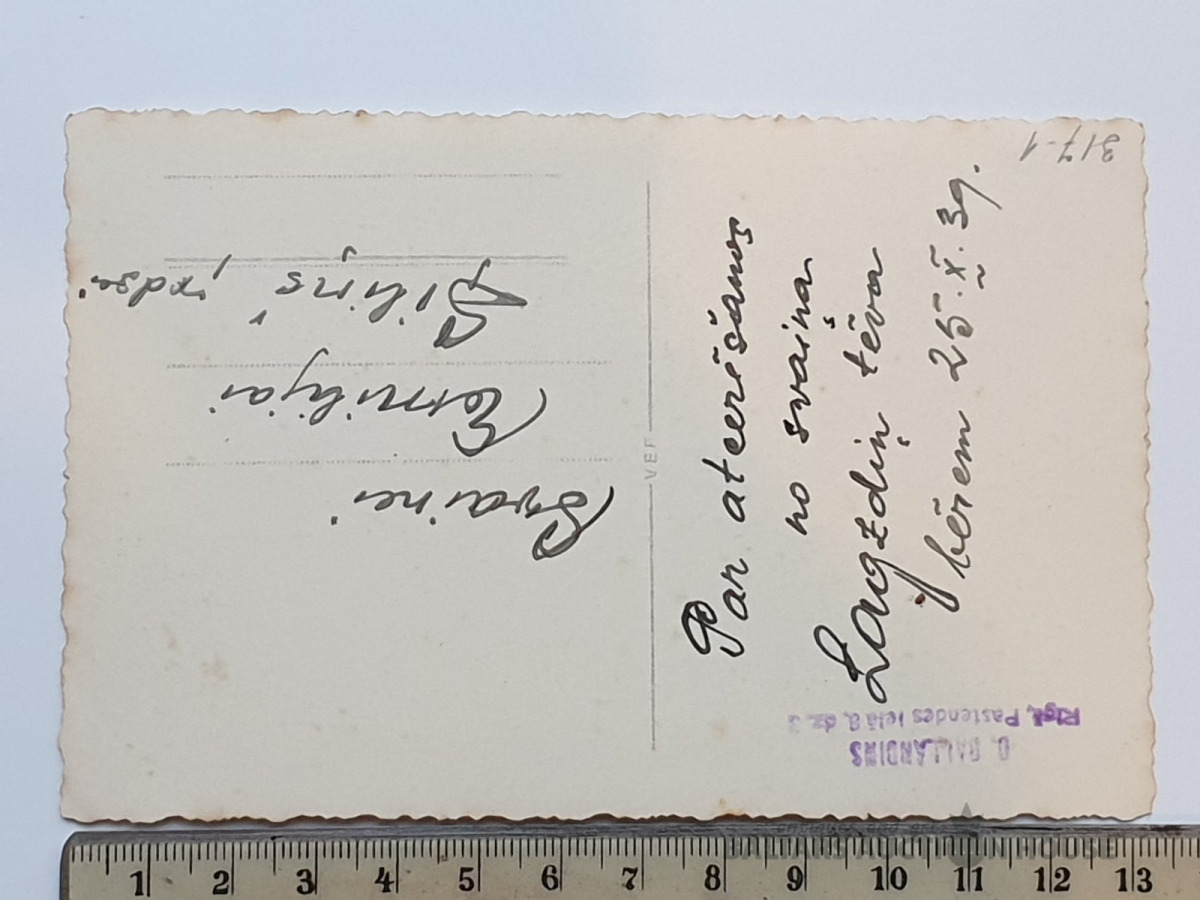 317-1
Par atcerēšanos
no svaiņa
Laugzdiņ tēva
bērem 25. X. 39.
Svainei
Emilijai
Siliņš
VEF
O. BALLANDINS
Rīgā, Pastendes ielā 8, dz. 3
1 2 3 4 5 6 7 8 9 10 11 12 13